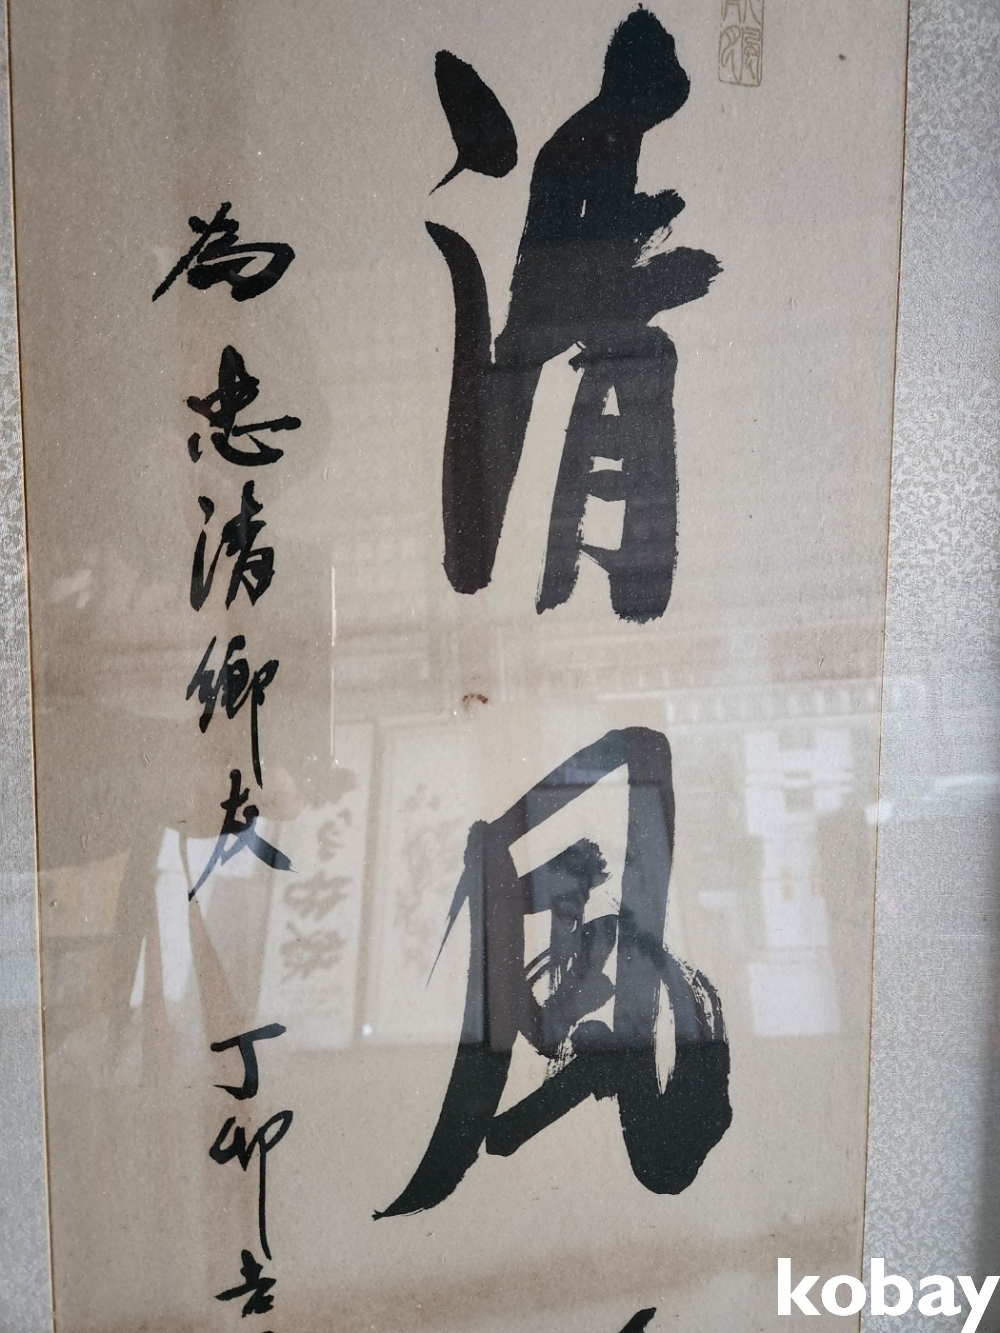 清風
為忠清鄉友 丁卯吉
kobay